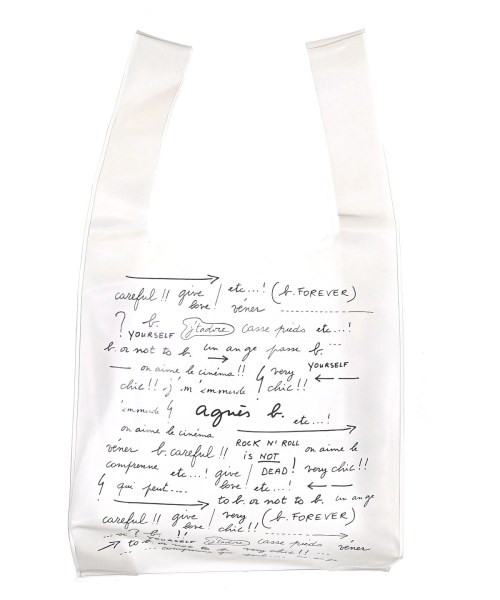 careful !! give love / etc...! (b. FOREVER)
véner
? b. YOURSELF j'tadore casse pieds etc...!
b. or not to b. un ange passe b. ...
on aime le cinéma !! very YOURSELF
chic !! j'm'emmerde chic !!
emmerde agnès b. etc...!
on aime le cinéma
ROCK N' ROLL IS NOT DEAD! on aime le
véner b. careful !!
comprenne etc...! give love / etc...! very chic !!
qui peut....
to b. or not to b. un ange
careful !! give love / very chic !! (b. FOREVER)
? b. j'tadore casse pieds véner
to b.